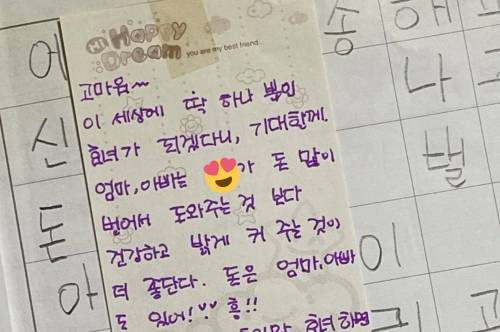 Hi Happy Dream
you are my best friend...
고마움~
이 세상에 딱 하나 뿐인
효녀가 되겠다니, 기대할게.
엄마, 아빠는 가 돈 많이
벌어서 도와주는 것 보다
건강하고 밝게 커 주는 것이
더 좋단다. 돈은 엄마, 아빠
도 있어! 흥!!
효녀 하면
어
신
돈
아
송 해
나
낼
이
고